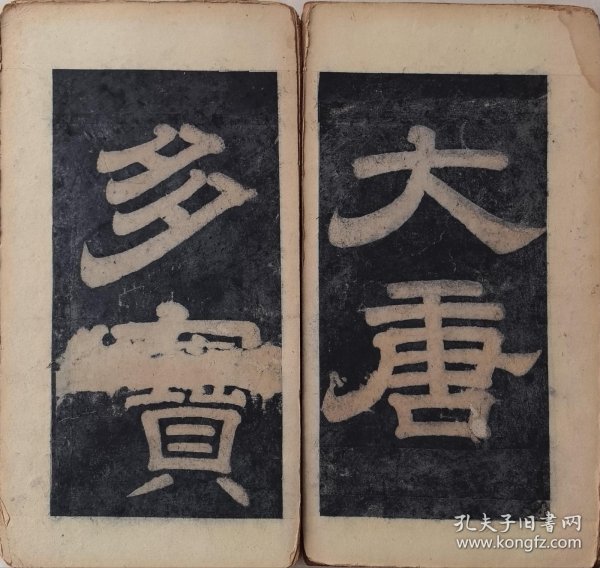 大唐
多寶
孔夫子旧書网
www.kongfz.com